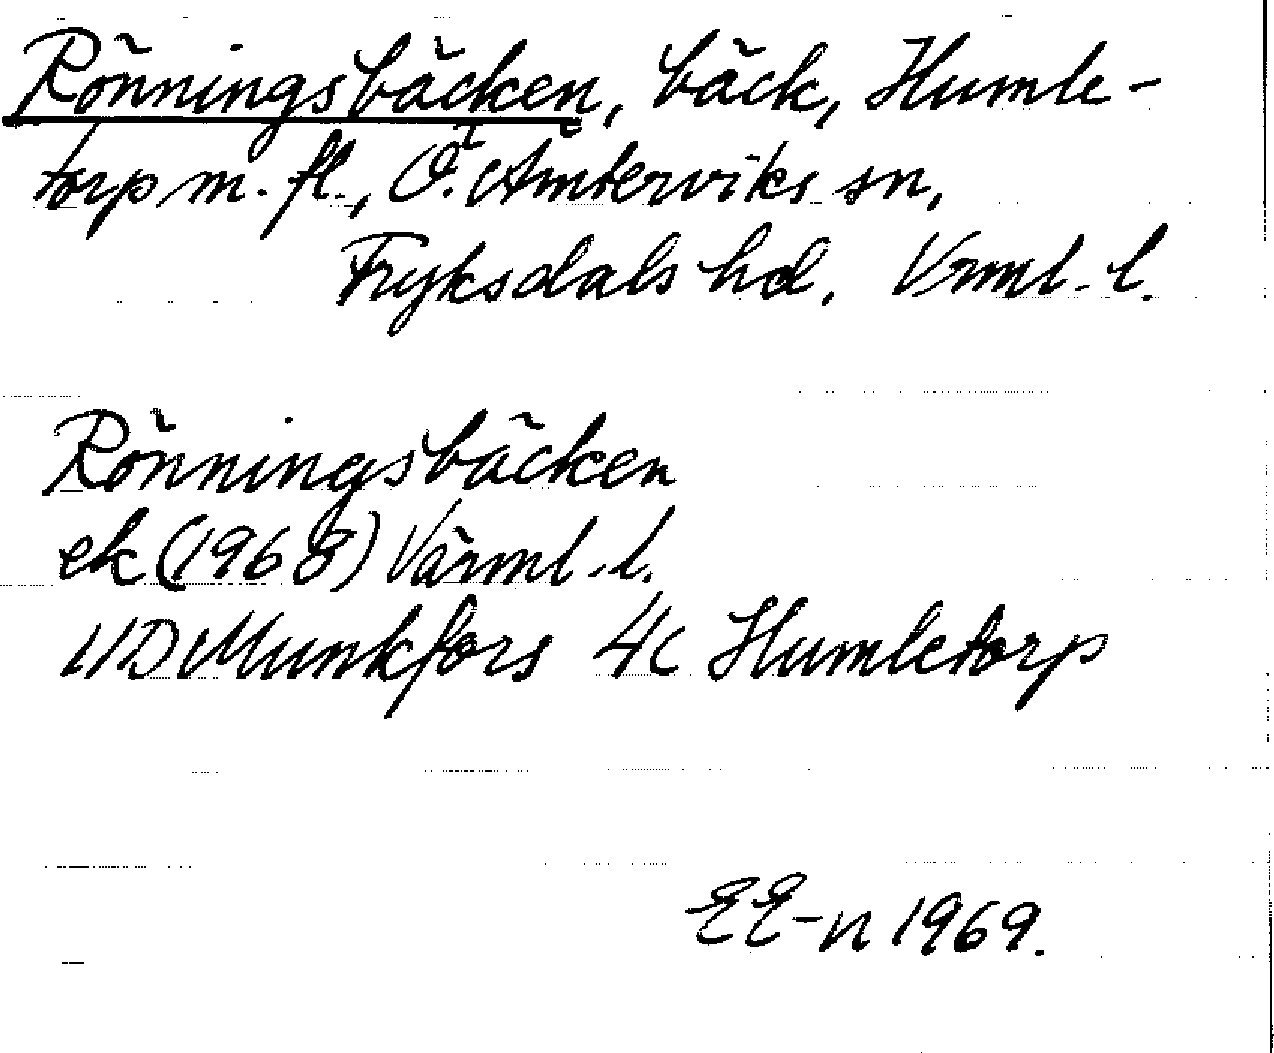 Rönningsbäcken, bäck, Humle-
torp m. fl., Ö. Ämterviks sn,
Fryksdals hd, Vrml. l.
Rönningsbäcken
ek (1968) Värml. l.
11D Munkfors 4c Humletorp
EE-n 1969.